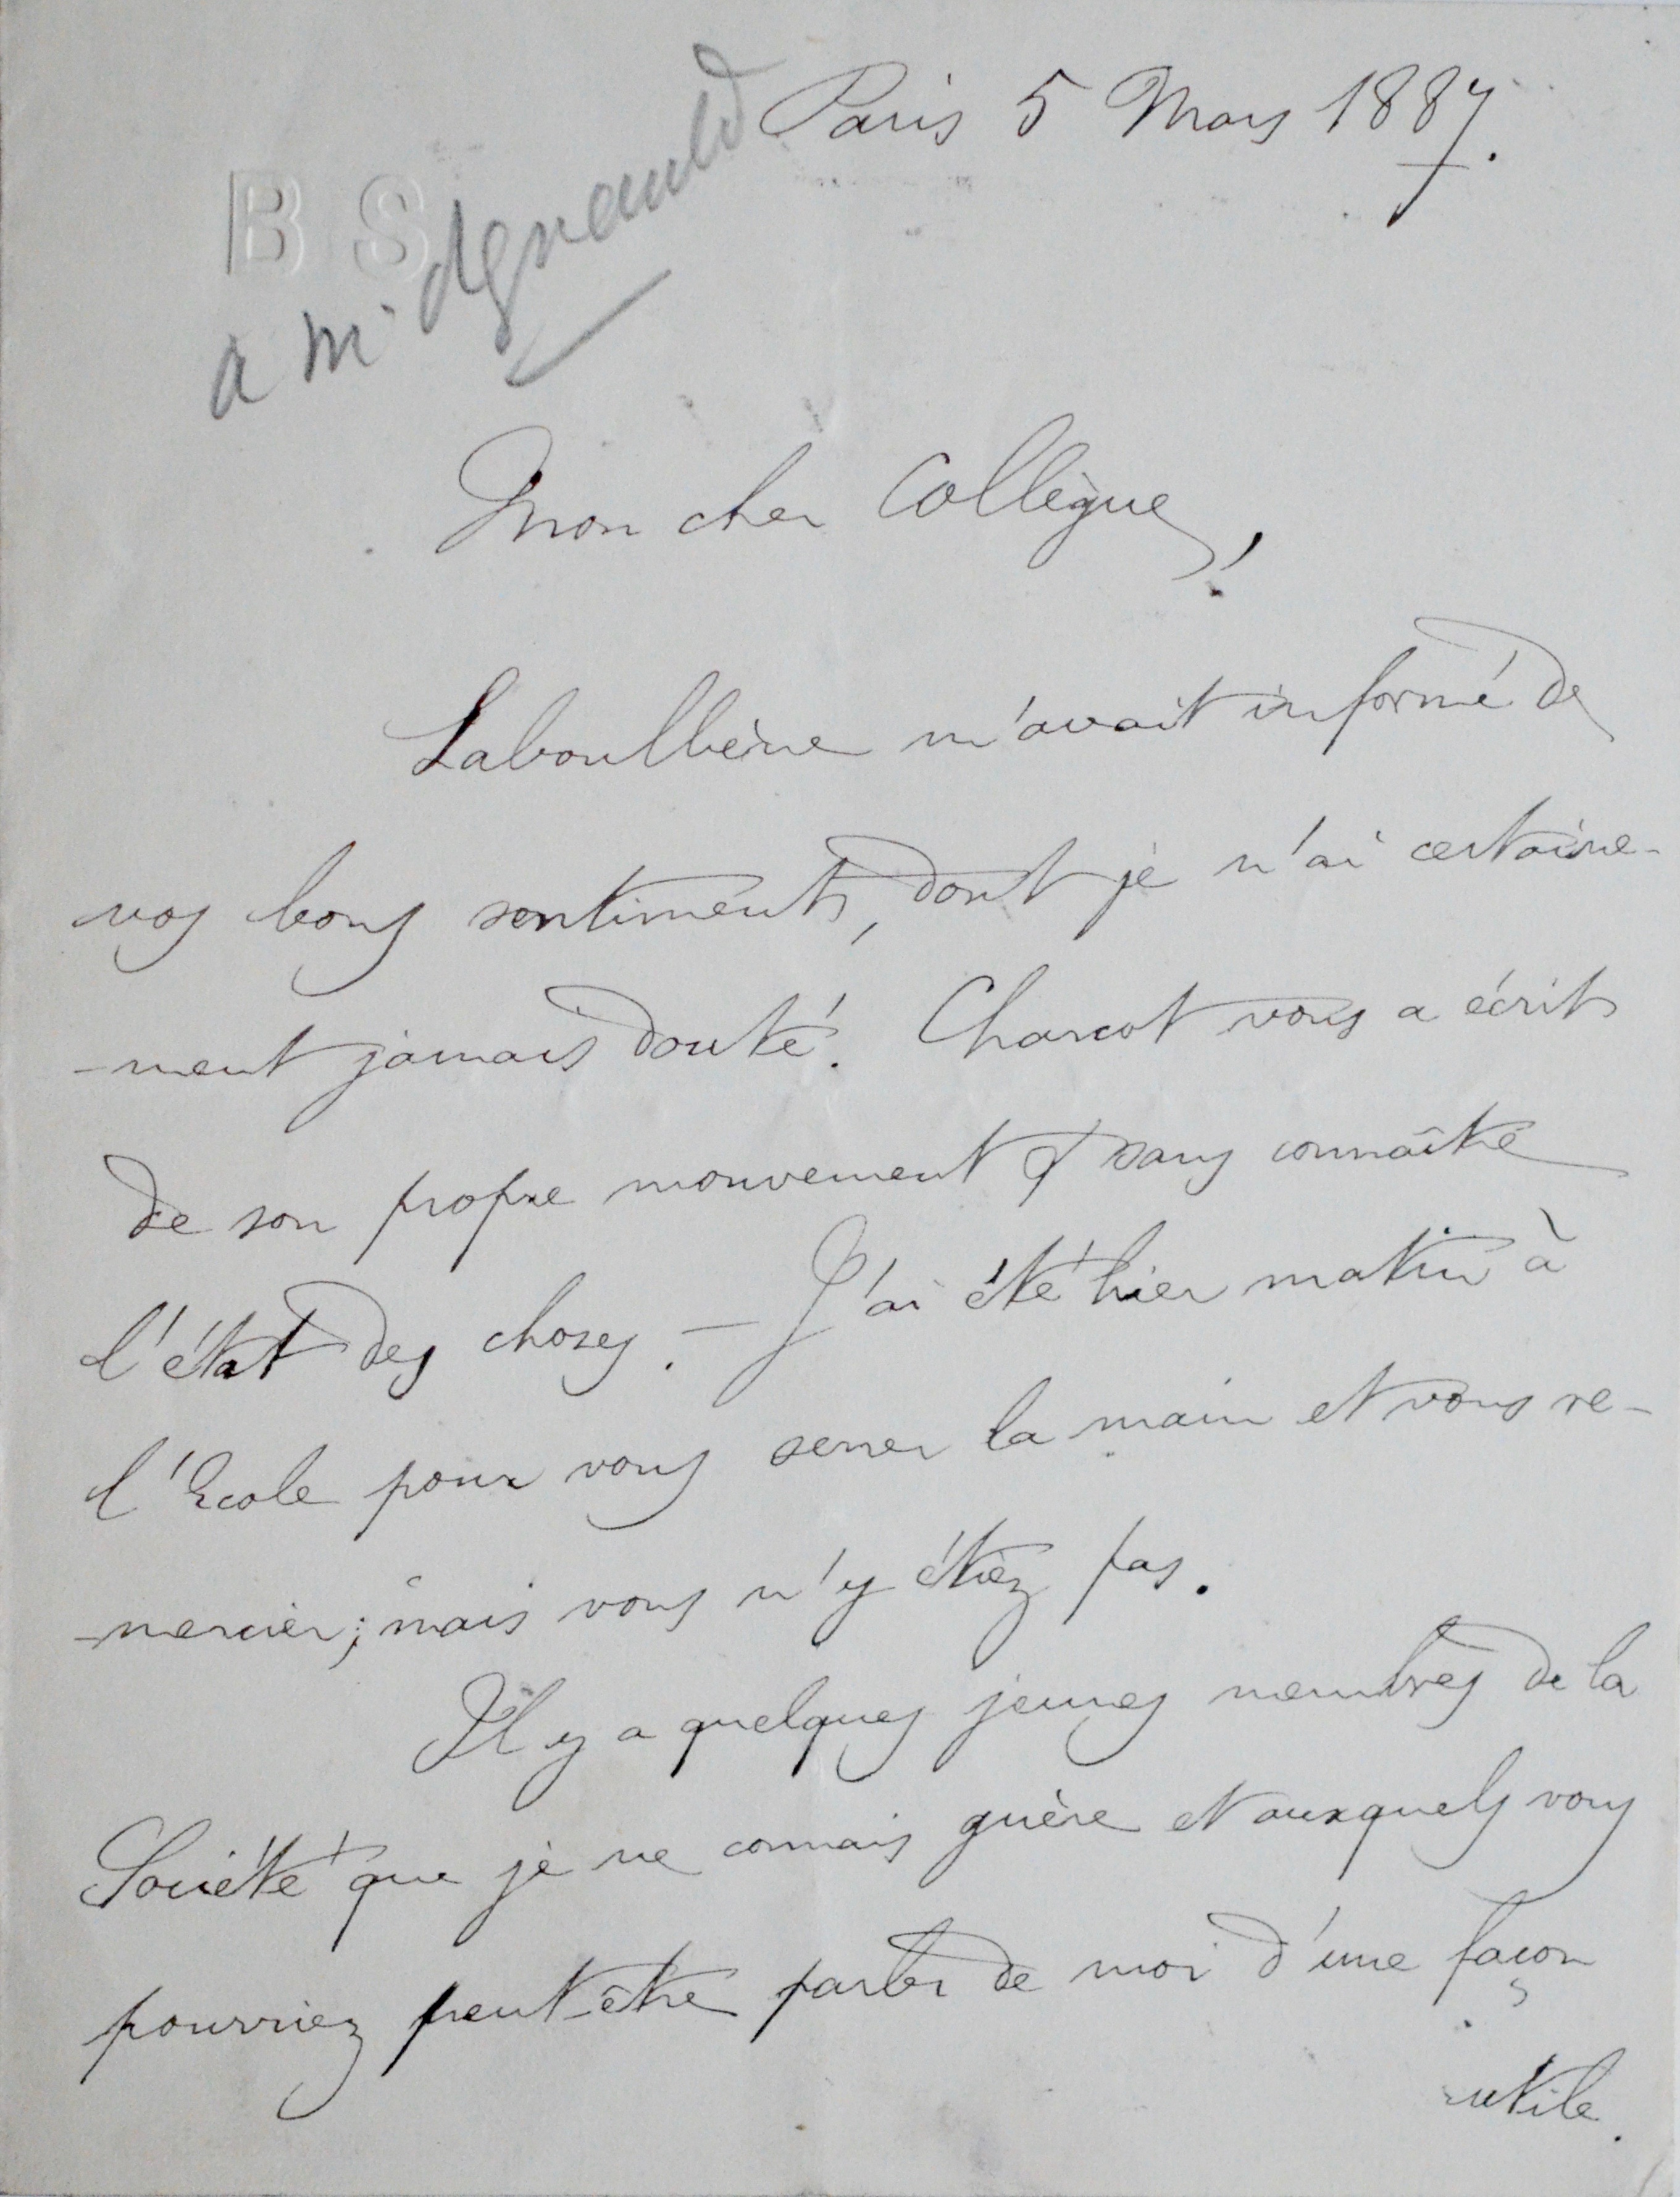 Paris 5 Mars 1887.
B S
a Mr dgneauld
Mon cher Collègue,
Laboulbène m'avait informé de
vos bons sentiments, dont je n'ai certaine-
-ment jamais douté. Charcot vous a écrit
de son propre mouvement & sans connaître
l'état des choses. — J'ai été hier matin à
l'Ecole pour vous serrer la main et vous re-
-mercier; mais vous n'y étiez pas.
Il y a quelques jeunes membres de la
Société que je ne connais guère et auxquels vous
pourriez peut-être parler de moi d'une façon
utile.